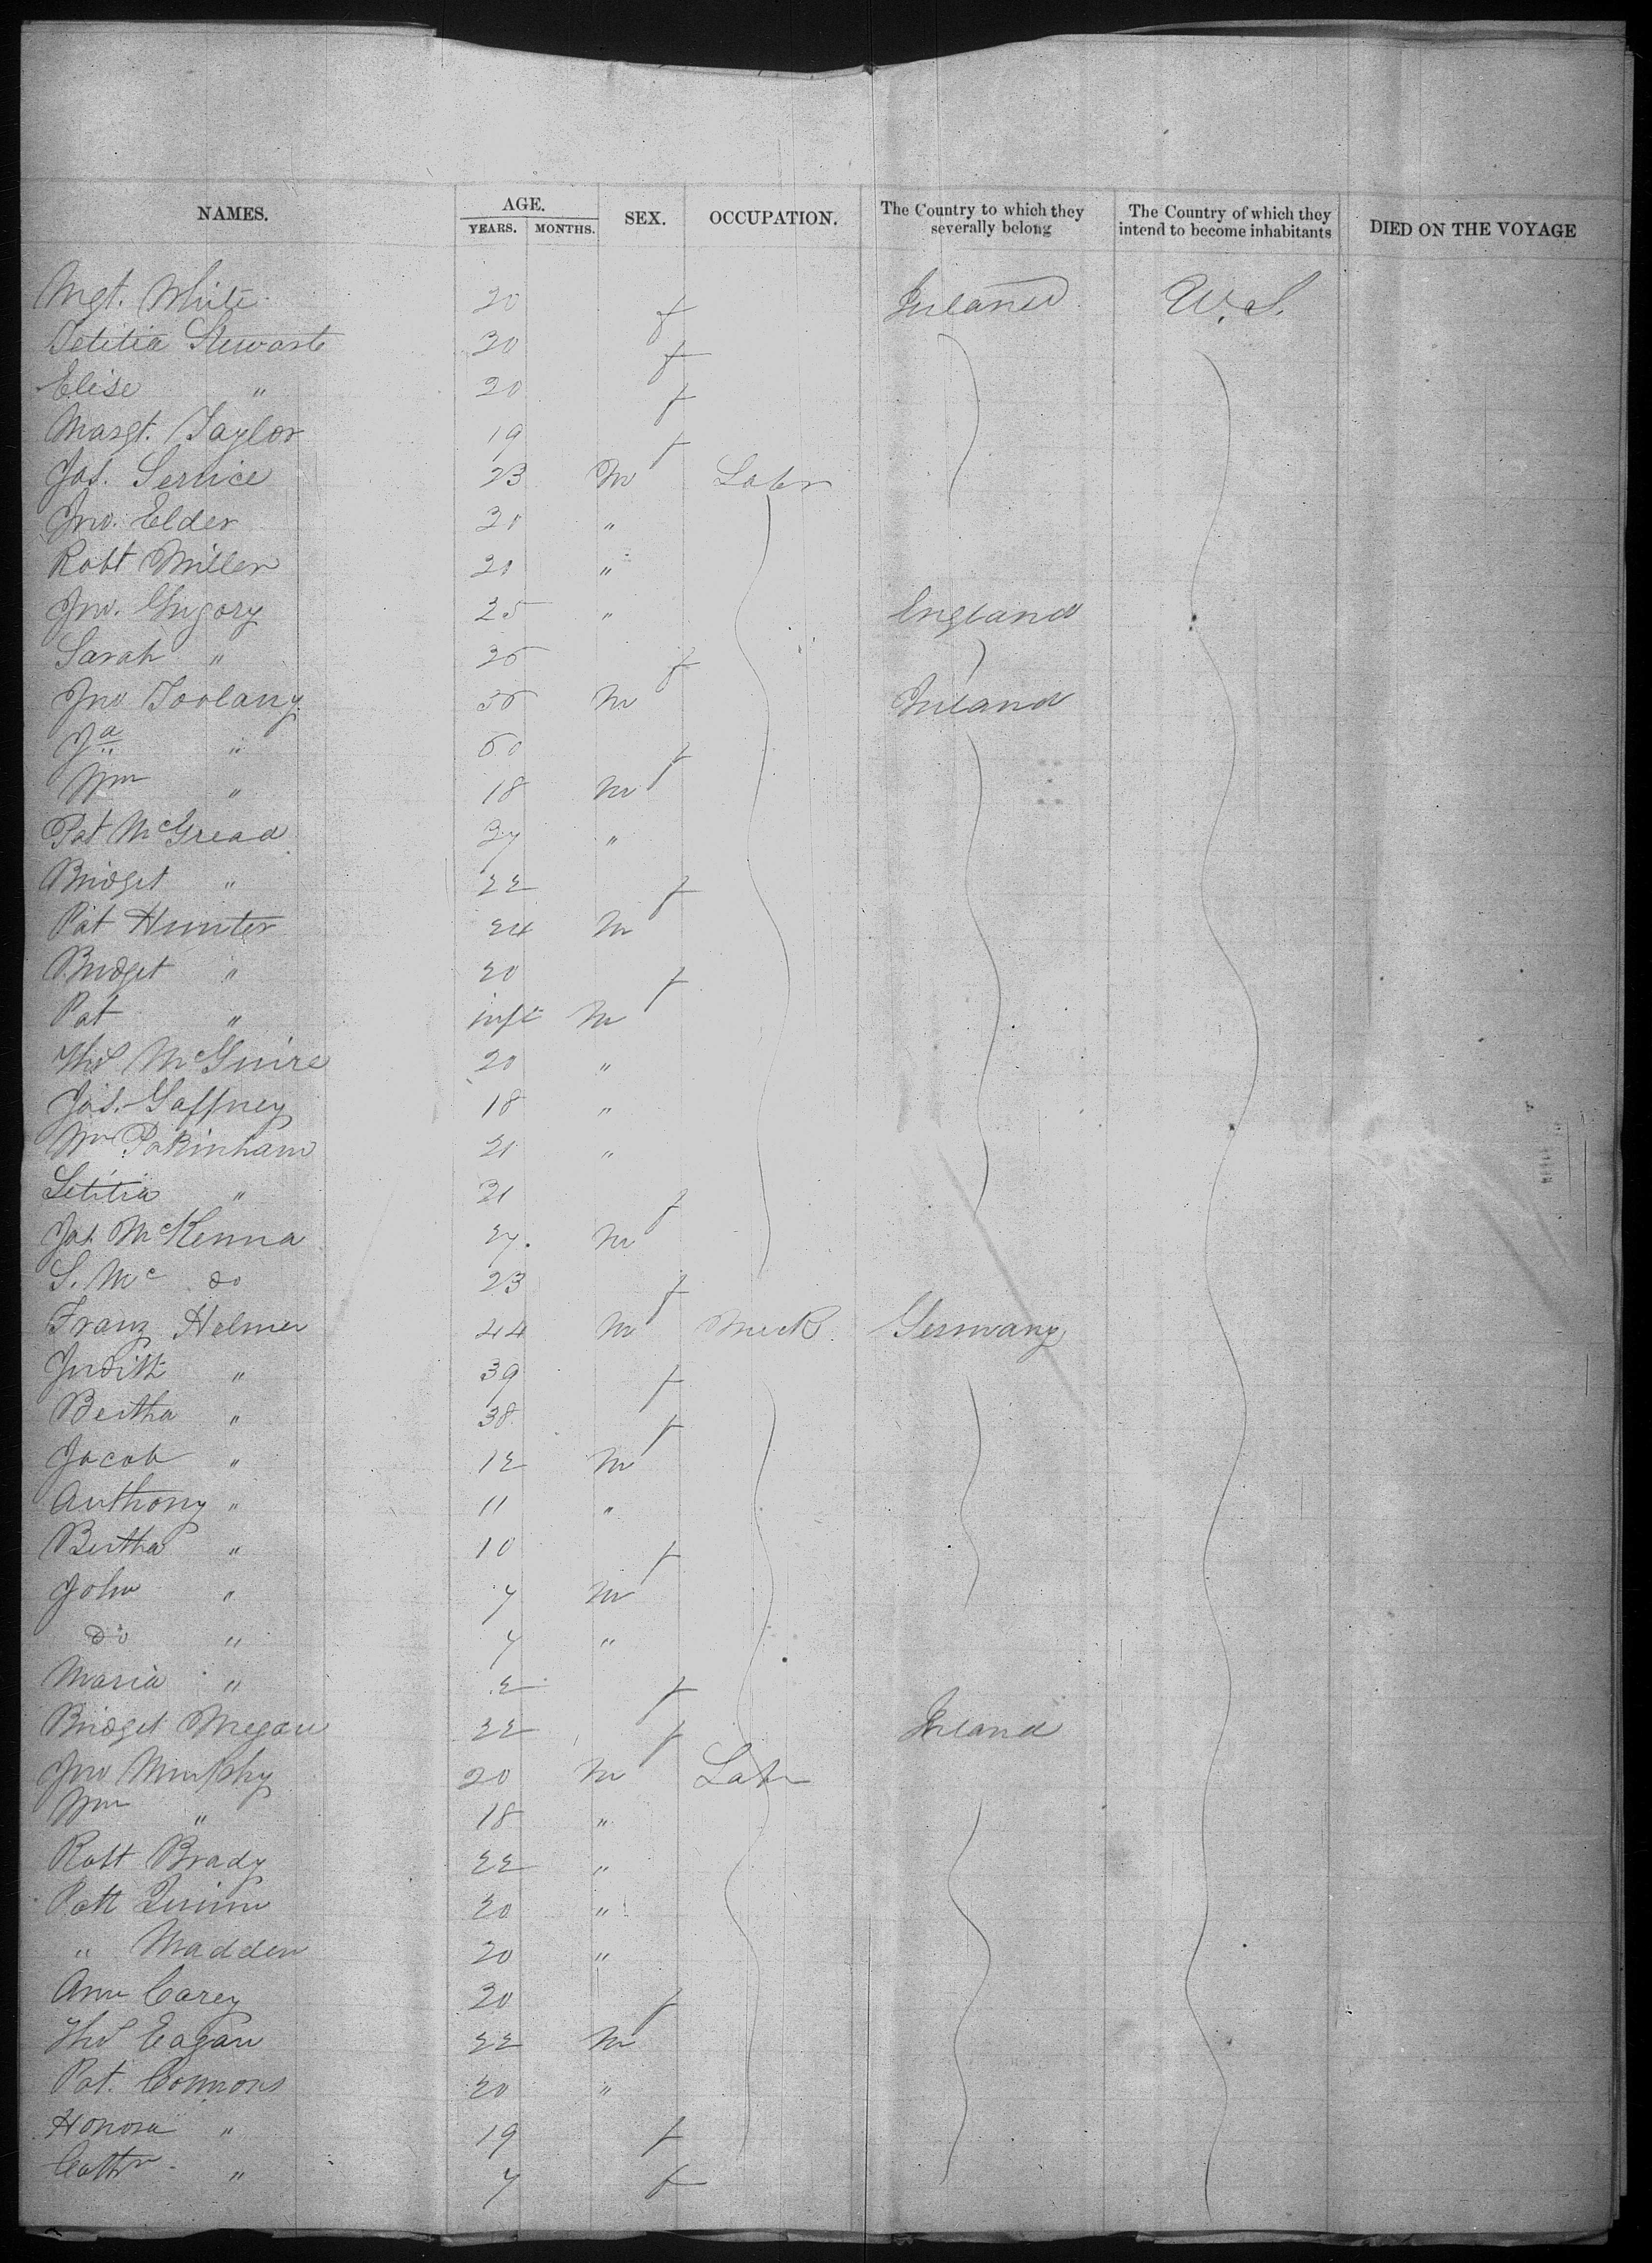 NAMES. AGE. SEX. OCCUPATION. The Country to which they severally belong The Country of which they intend to become inhabitants DIED ON THE VOYAGE
YEARS. MONTHS.
Mgt. White 20 f Ireland U.S.
Letitia Stewart 30 f
Elise " 20 f
Margt. Taylor 19 f
Jas. Service 23 M Labr
Jno. Elder 20 "
Robt Miller 20 "
Jno. Gregory 25 " England
Sarah " 25 f
Jno Toolany M Ireland
" 60 f
Wm " 18 M
Pat McGread 27 "
Bridget " 22 f
Pat Hunter 24 M
Bridget " 20 f
Pat " inft M
Thos McGuire 20 "
Jas. Gaffney 18 "
Wm Pakinham 21 "
Letitia " 21 f
Jas. McKenna 27. M
S. Mc do 23 f
Franz Helmer 44 M Mech. Germany
Judith " 39 f
Bertha " 38 f
Jacob " 12 M
Anthony " 11 "
Bertha " 10 f
John " 7 M
do " 7 "
Maria " 2 f
Bridget Megan 22 f Ireland
Jno Murphy 20 M Labr
Wm " 18 "
Robt Brady 22 "
Patt Quinn 20 "
" Madden 20 "
Ann Carey 20 f
Thos Eagan 22 M
Pat. Connors 20 "
Honora " 19 f
Cathr " 7 f